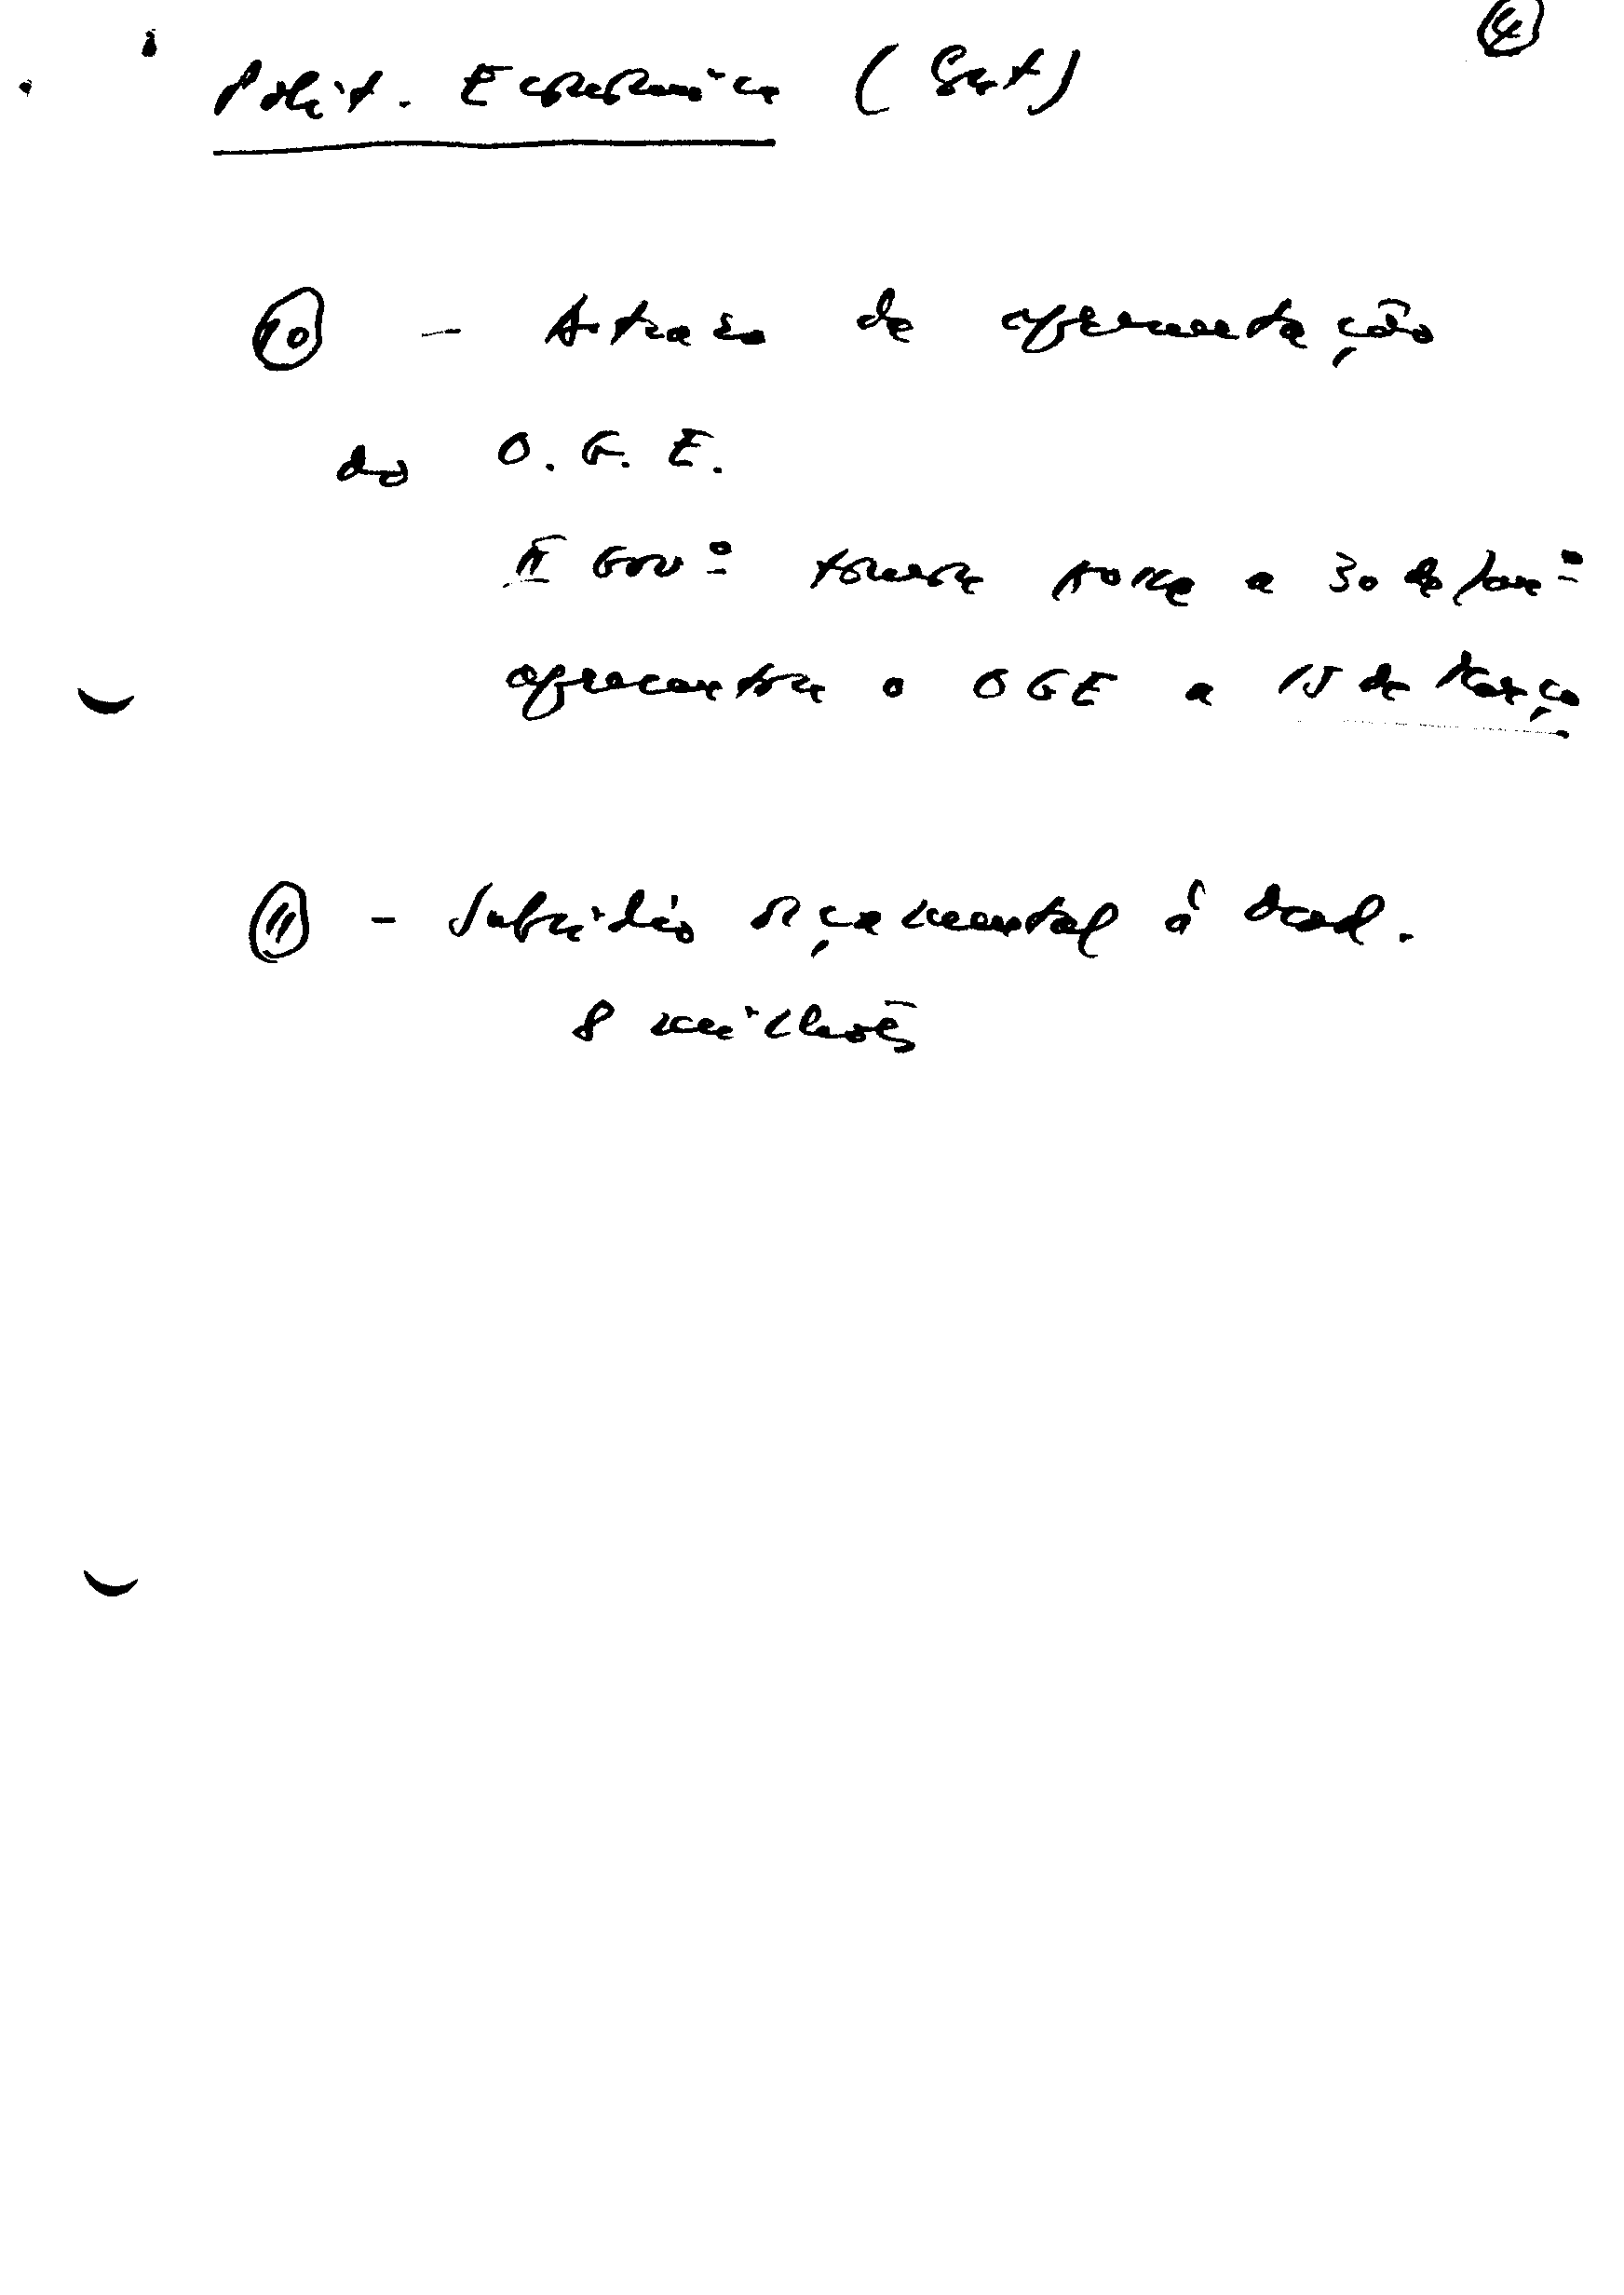 ④
Polít. Económica (Ext)
⑩ - Atraso de apresentação
do O.G.E.
II Govº tomou posse a 30 de Janº
apresentou o OGE a 15 de Março
⑪ - Subsídio orçamental à
8 milhões